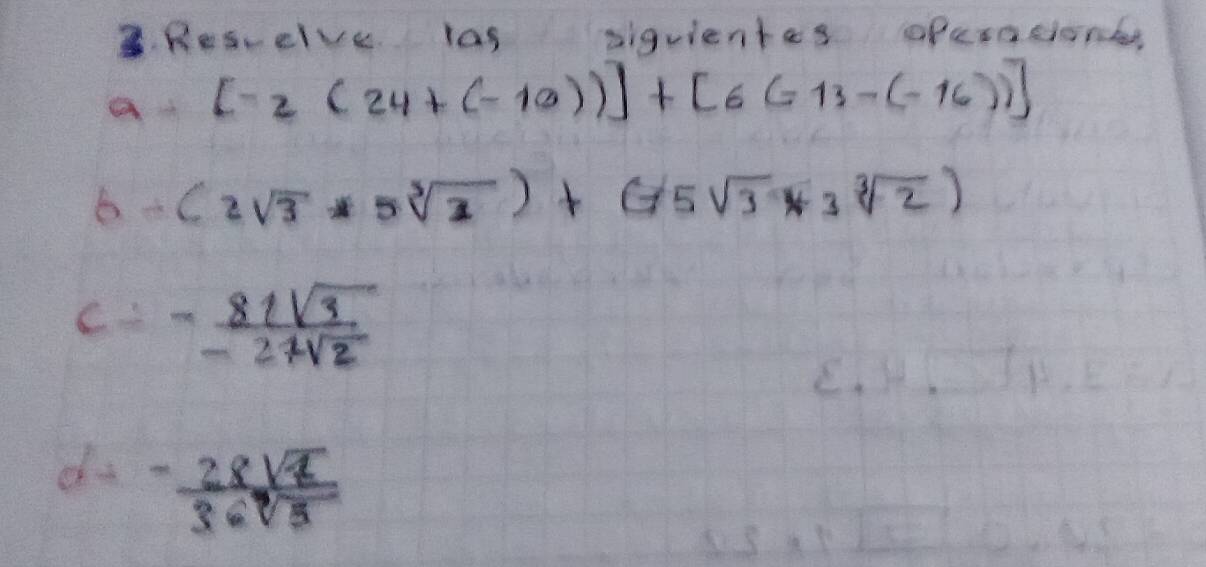 3. Resuelve las siguientes operaciones.
a - [-2 (24 + (-10))] + [6 (-13 - (-16))]
b - (2√3 * 5∛2) + (-5√3 * 3∛2)
c - - 81√3 / - 27√2
d - - 28√ / 36